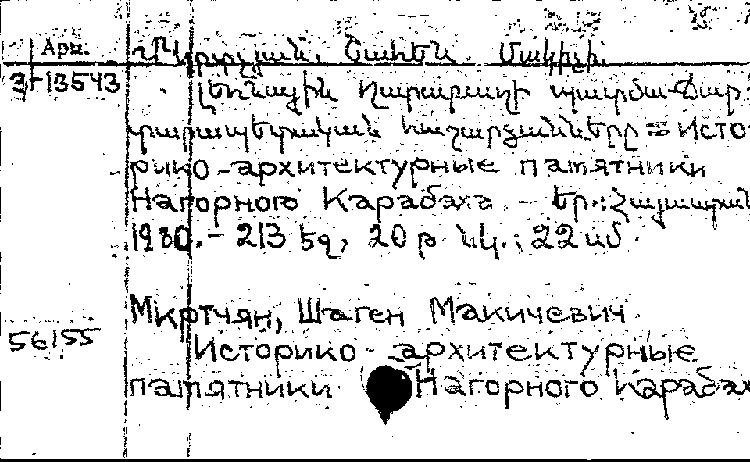 Арм.
Մկրտչյան, Շահեն Մակիչի.
3-13543
Լեռնային Ղարաբաղի պատմա-ճար-
տարապետական հուշարձանները = Исто-
рико-архитектурные памятники
Нагорного Карабаха. – Եր.: Հայաստան
1980. – 213 էջ, 20 թ. նկ.; 22 սմ.
Мкртчян, Шаген Макичевич
56155
Историко-архитектурные
памятники Нагорного Карабах